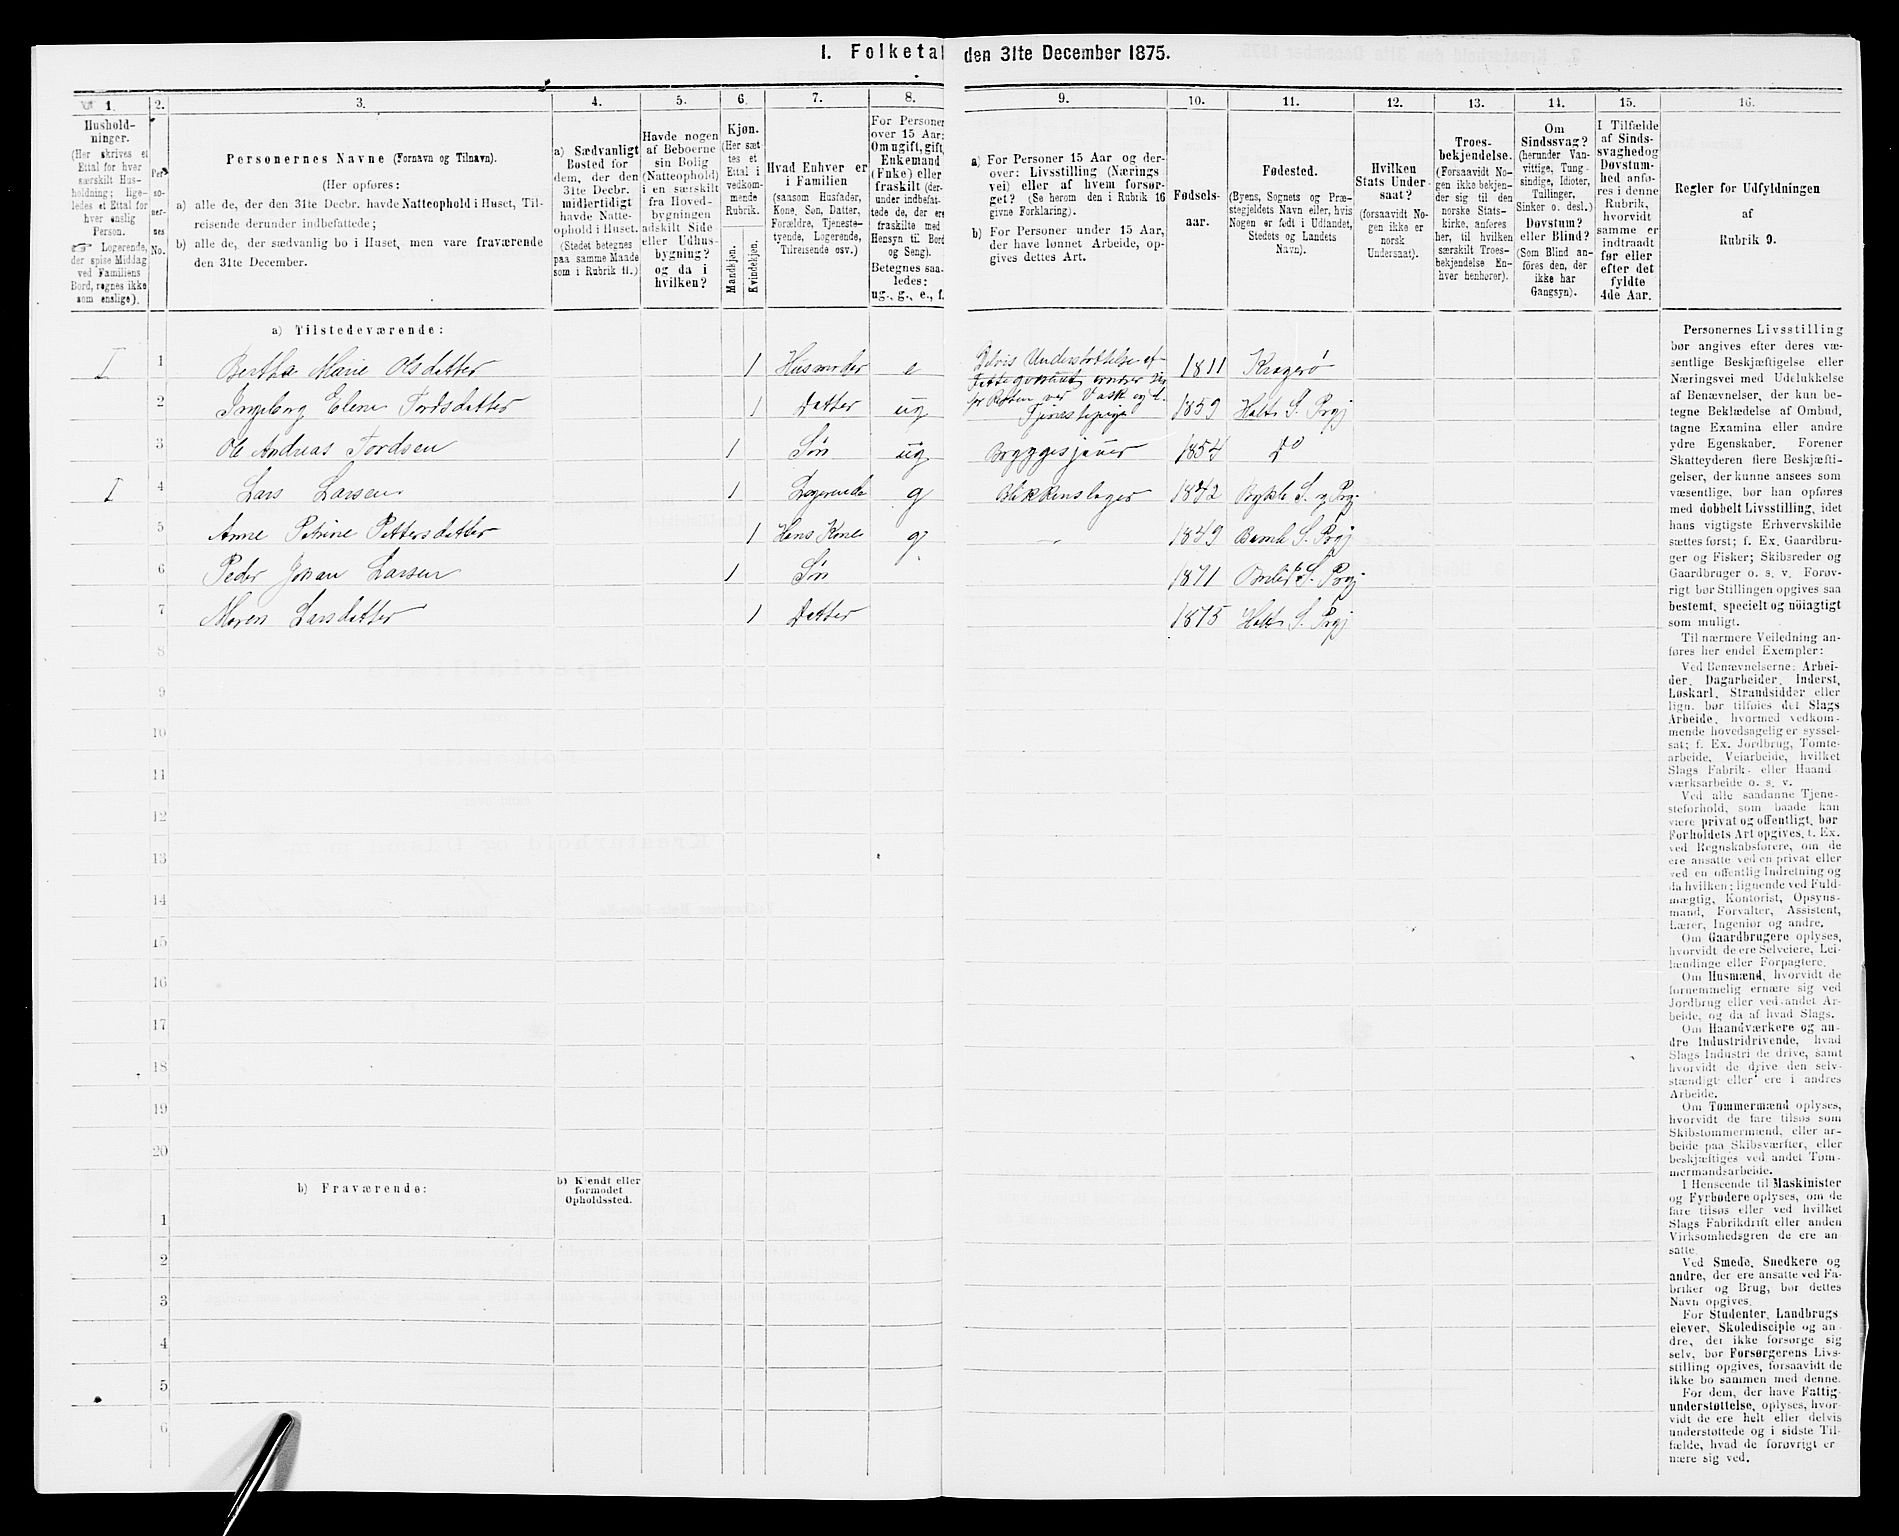 I. Folketal den 31te December 1875.
1. 2. 3. 4. 5. 6. 7. 8. 9. 10. 11. 12. 13. 14. 15. 16.
Hushold-
ninger.
(Her skrives et
Ettal for hver
særskilt Hus-
holdning; lige-
ledes et Ettal for
hver enslig
Person.
☞ Logerende,
der spise Middag
ved Familiens
Bord, regnes ikke
som enslige).
Per-
so-
ner-
nes
No.
Personernes Navne (Fornavn og Tilnavn).
(Her opføres:
a) alle de, der den 31te Decbr. havde Natteophold i Huset, Til-
reisende derunder indbefattede;
b) alle de, der sædvanlig bo i Huset, men vare fraværende
den 31te December.
a) Sædvanligt
Bosted for
dem, der den
31te Decbr.
midlertidigt
havde Natte-
ophold i Huset.
(Stedet betegnes
paa samme Maade
som i Rubrik 11.)
Havde nogen
af Beboerne
sin Bolig
(Natteophold)
i en særskilt
fra Hoved-
bygningen
adskilt Side-
eller Udhus-
bygning?
og da i
hvilken?
Kjøn.
(Her sæt-
tes et
Ettal i
vedkom-
mende
Rubrik.
Mandkjøn.
Kvindekjøn.
Hvad Enhver er
i Familien
(saasom Husfader,
Kone, Søn, Datter,
Forældre, Tjeneste-
tyende, Logerende,
Tilreisende osv.)
For Personer
over 15 Aar:
Om ugift, gift,
Enkemand
(Enke) eller
fraskilt (der-
under indbefat-
tede de, der ere
fraskilte med
Hensyn til Bord
og Seng).
Betegnes saa-
ledes:
ug., g., e., f.
a) For Personer 15 Aar og der-
over: Livsstilling (Nærings-
vei) eller af hvem forsør-
get? (Se herom den i Rubrik 16
givne Forklaring).
b) For Personer under 15 Aar,
der have lønnet Arbeide, op-
gives dettes Art.
Fødsels-
aar.
Fødested.
(Byens, Sognets og Præ-
stegjeldets Navn eller, hvis
Nogen er født i Udlandet,
Stedets og Landets
Navn).
Hvilken
Stats Under-
saat?
(forsaavidt No-
gen ikke er
norsk
Undersaat).
Troes-
bekjendelse.
(Forsaavidt No-
gen ikke bekjen-
der sig til den
norske Stats-
kirke, anføres
her, til hvilken
særskilt Troes-
bekjendelse En-
hver henhører).
Om
Sindssvag?
(herunder Van-
vittige, Tung-
sindige, Idioter,
Tullinger,
Sinker o. desl.)
Døvstum?
eller Blind?
(Som Blind an-
føres den, der
ikke har
Gangsyn).
I Tilfælde
af Sinds-
svaghed og
Døvstum-
hed anfø-
res i denne
Rubrik,
hvorvidt
samme er
indtraadt
før eller
efter det
fyldte
4de Aar.
Regler for Udfyldningen
af
Rubrik 9.
a) Tilstedeværende:
I 1 Bertha Marie Olsdatter 1 Husmoder e Delvis Understøttelse af Fattig ernærer sig 1811 Kragerø
2 Ingeborg Elene Tordsdatter 1 Datter ug Tjenestepige 1859 Holt S. Prgj
3 Ole Andreas Tordsen 1 Søn ug Bryggesjauer 1854 Do
I 4 Lars Larsen 1 Logerende g Blikkenslager 1842 Bykle S. og Prgj.
5 Anne Petrine Pettersdatter 1 Hans Kone g — 1849 Bamle S. Prgj
6 Peder Johan Larsen 1 Søn 1871 S. Prgj
7 Maren Larsdatter 1 Datter 1875 Holt S. Prgj
8
9
10
11
12
13
14
15
16
17
18
19
20
b) Fraværende: b) Kjendt eller
formodet
Opholdssted.
1
2
3
4
5
6
Personernes Livsstilling
bør angives efter deres væ-
sentlige Beskjæftigelse eller
Næringsvei med Udelukkelse
af Benævnelser, der kun be-
tegne Beklædelse af Ombud,
tagne Examina eller andre
ydre Egenskaber. Forener
Skatteyderen flere Beskjæfti-
gelser, der kunne ansees som
væsentlige, bør han opføres
med dobbelt Livsstilling, idet
hans vigtigste Erhvervskilde
sættes først; f. Ex. Gaardbru-
ger og Fisker; Skibsreder og
Gaardbruger o. s. v. Forøv-
rigt bør Stillingen opgives saa
bestemt, specielt og nöiagtigt
som muligt.
Til nærmere Veiledning an-
føres her endel Exempler:
Ved Benævnelserne: Arbei-
der, Dagarbeider, Inderst,
Løskarl, Strandsidder eller
lign. bør tilføies det Slags
Arbeide, hvormed vedkom-
mende hovedsagelig er syssel-
sat; f. Ex. Jordbrug, Tomte-
arbeide, Veiarbeide, hvilket
Slags Fabrik- eller Haand-
værksarbeide o. s. v.
Ved alle saadanne Tjene-
steforhold, som baade kan
være privat og offentligt, bør
Forholdets Art opgives, f. Ex.
ved Regnskabsførere, om de
ere ansatte ved en privat eller
ved en offentlig Indretning og
da hvilken; lignende ved Fuld-
mægtig, Kontorist, Opsyns-
mand, Forvalter, Assistent,
Lærer, Ingeniør og andre.
Om Gaardbrugere oplyses,
hvorvidt de ere Selveiere, Lei-
lændinge eller Forpagtere.
Om Husmænd, hvorvidt de
fornemmelig ernære sig ved
Jordbrug eller ved andet Ar-
beide, og da af hvad Slags.
Om Haandværkere og an-
dre Industridrivende, hvad
Slags Industri de drive, samt
hvorvidt de drive den selv-
stændigt eller ere i andres
Arbeide.
Om Tømmermænd oplyses,
hvorvidt de fare tilsøs som
Skibstømmermænd, eller ar-
beide paa Skibsværfter, eller
beskjæftiges ved andet Tøm-
mermandsarbeide.
I Henseende til Maskinister
og Fyrbødere oplyses, om de
fare tilsøs eller ved hvilket
Slags Fabrikdrift eller anden
Virksomhedsgren de ere an-
satte.
Ved Smede, Snedkere og
andre, der ere ansatte ved Fa-
briker og Brug, bør dettes
Navn opgives.
For Studenter, Landbrugs-
elever, Skoledisciple og an-
dre, der ikke forsørge sig
selv, bør Forsørgerens Livs-
stilling opgives, forsaavidt de
ikke bo sammen med denne.
For dem, der have Fattig-
understøttelse, oplyses, hvor-
vidt de ere helt eller delvis
understøttede og i sidste Til-
fælde, hvad de forøvrigt er-
nære sig ved.